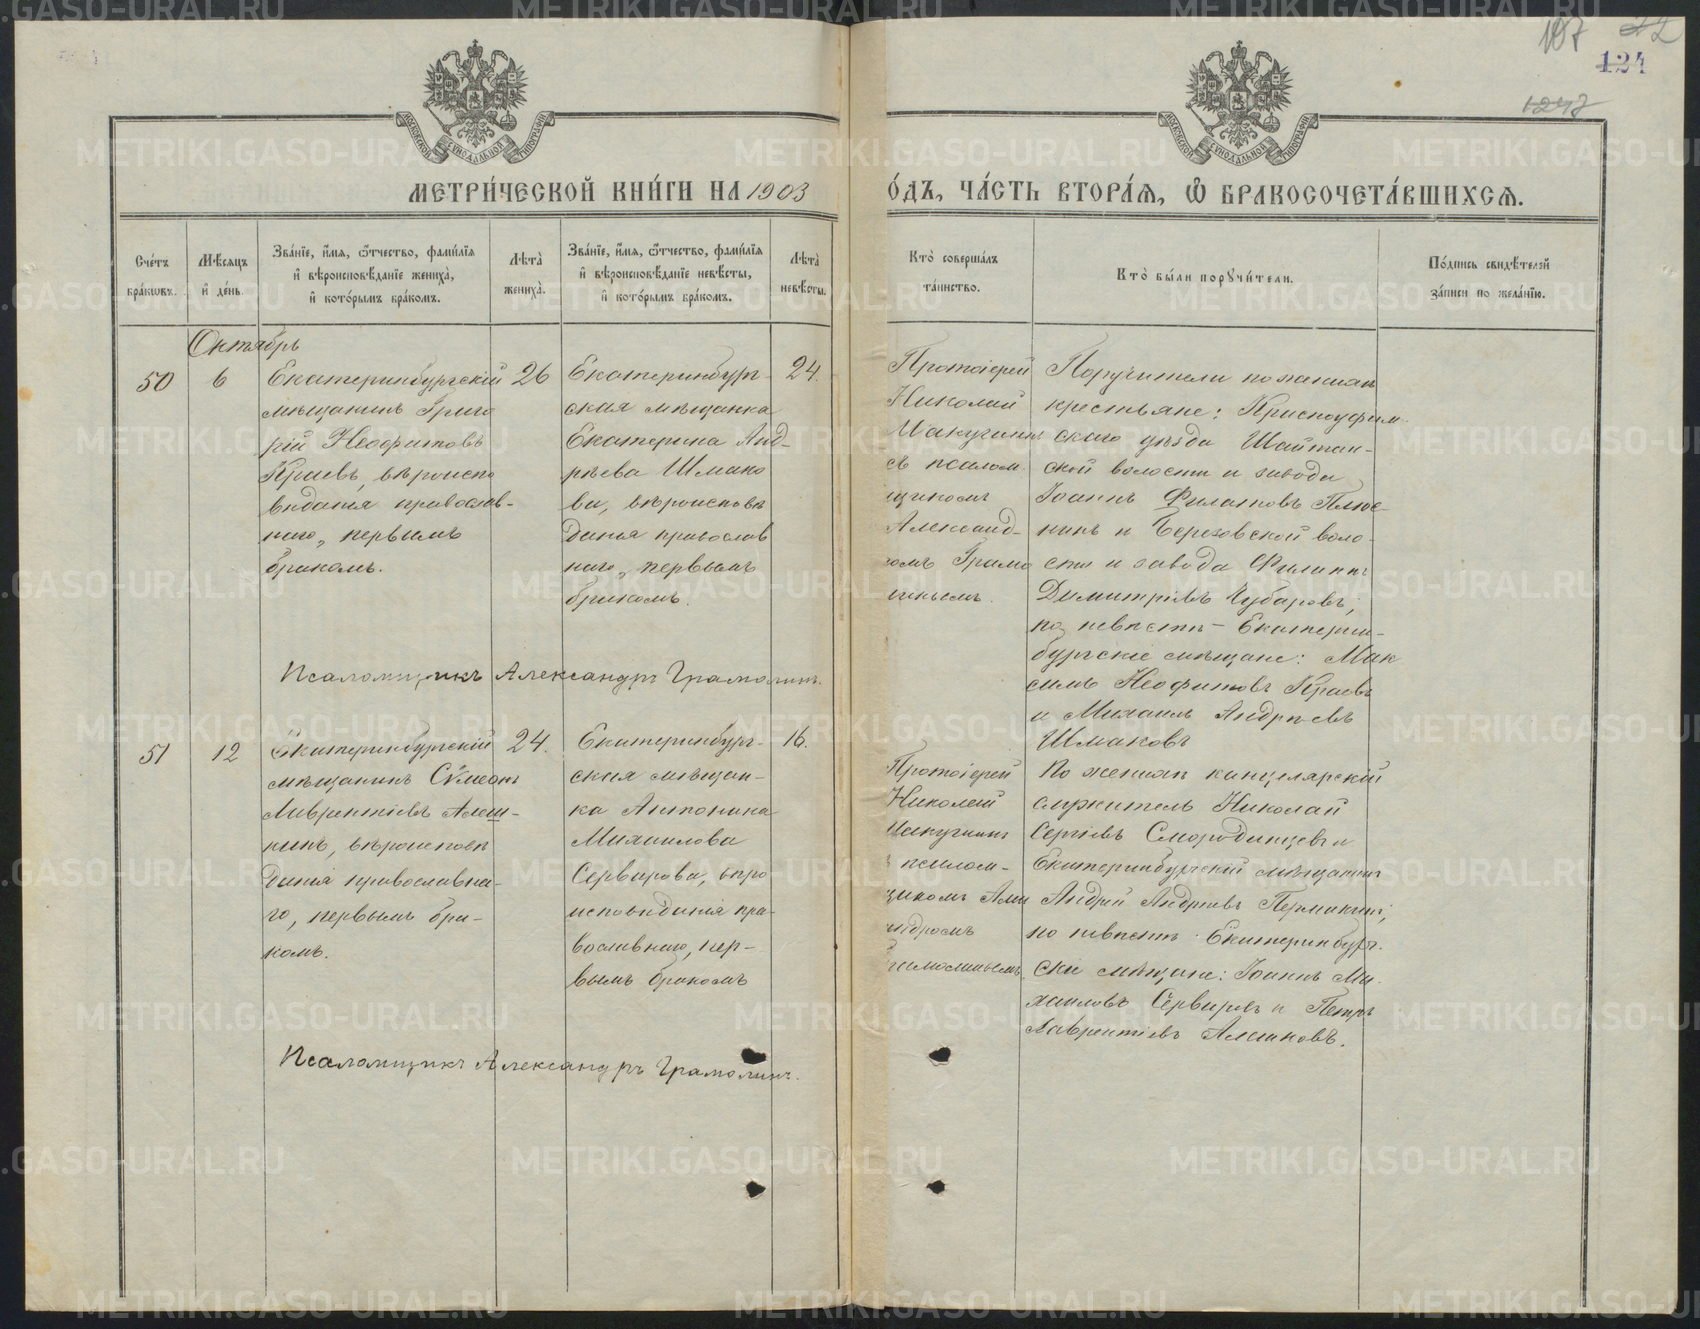 187
124
1247
МЕТРИ́ЧЕСКОЙ КНИ́ГИ НА 1903
О́ДЪ, ЧА́СТЬ ВТОРА́Я, Ѿ БРАКОСОЧЕТА́ВШИХСЯ.
Сче́тъ бра́ковъ.
Мѣ́сяцъ и҆ де́нь.
Зва́нїе, и҆́мя, ѻ҆́тчество, фами́лїя
и҆ вѣроисповѣ́данїе жениха̀,
и҆ кото́рымъ бра́комъ.
Лѣ́та̀ жениха̀.
Зва́нїе, и҆́мя, ѻ҆́тчество, фами́лїя
и҆ вѣроисповѣ́данїе невѣ́сты,
и҆ кото́рымъ бра́комъ.
Лѣ́та̀ невѣ́сты.
Кто̀ соверша́лъ
та́инство.
Кто̀ бы́ли пору́чи́тели.
По́дпись свидѣ́телей
за́писи по жела́нїю.
Октябрь
50
6
Екатеринбургскій
мѣщанинъ Григо
рій Неофитовъ
Краевъ, вѣроиспо
вѣданія православ-
наго, первымъ
бракомъ.
26
Екатеринбург-
ская мѣщанка
Екатерина Анд-
рѣева Шмако
ва, вѣроисповѣ
данія православ
наго, первымъ
бракомъ.
24.
Протоіерей
Николай
Макушинъ
съ псалом
щикомъ
Александ-
ромъ Грамо
линымъ.
Поручители по женихѣ
крестьяне: Красноуфим-
скаго уѣзда Шайтан-
ской волости и завода
Іоаннъ Филатовъ Плюс-
нинъ и Березовской воло-
сти и завода Филиппъ
Димитріевъ Чубаровъ;
по невѣстѣ - Екатерин-
бургскіе мѣщане: Мак
симъ Неофитовъ Краевъ
и Михаилъ Андрѣевъ
Шмаковъ
Псаломщикъ Александръ Грамолинъ.
51
12
Екатеринбургскій
мѣщанинъ Сѵмеонъ
Лаврентіевъ Алеш-
кинъ, вѣроисповѣ
данія православна-
го, первымъ бра-
комъ.
24.
Екатеринбург-
ская мѣщан-
ка Антонина
Михаилова
Сервирова, вѣро
исповѣданія пра-
вославнаго, пер-
вымъ бракомъ
16.
Протоіерей
Николай
Макушинъ
псалом-
щикомъ Алек
сандромъ
Грамолинымъ.
По женихѣ канцелярскій
служитель Николай
Сергіевъ Смородинцевъ и
Екатеринбургскій мѣщанинъ
Андрей Андреевъ Пермякинъ;
по невѣстѣ Екатеринбург-
скіе мѣщане: Іоаннъ Ми-
хаиловъ Сервировъ и Петръ
Лаврентіевъ
Псаломщикъ Александръ Грамолинъ.
METRIKI.GASO-URAL.RU